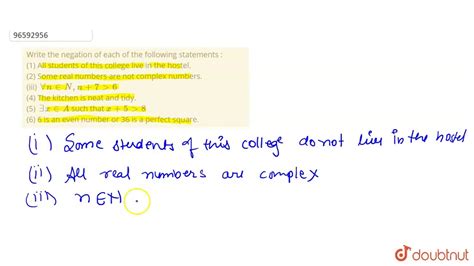 96592956
Write the negation of each of the following statements :
(1) All students of this college live in the hostel.
(2) Some real numbers are not complex numbers.
(iii) ∀n ∈ N, n + 7 > 6
(4) The kitchen is neat and tidy.
(5) ∃x ∈ A such that x + 5 > 8
(6) 6 is an even number or 36 is a perfect square.
(i) Some students of this college do not lives in the hostel
(ii) All real numbers are complex
(iii) n ∈ N
doubtnut